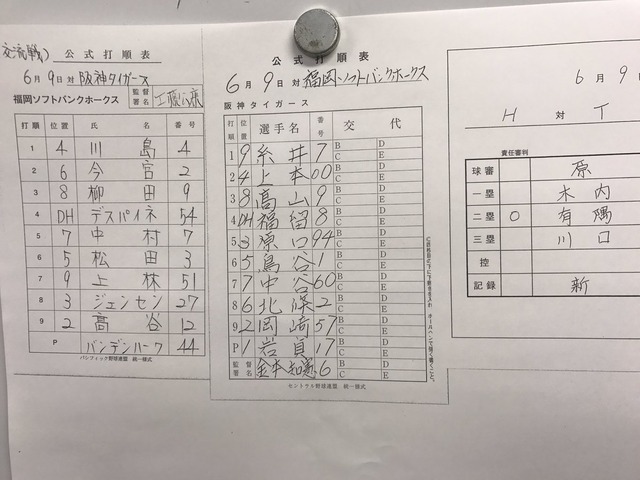 交流戦)
公式打順表
6月9日対阪神タイガース
福岡ソフトバンクホークス
監督署名 工藤公康
打順 位置 氏名 番号
1 4 川島 4
2 6 今宮 2
3 8 柳田 9
4 DH デスパイネ 54
5 7 中村 7
6 5 松田 3
7 9 上林 51
8 3 ジェンセン 27
9 2 高谷 12
P バンデンハーク 44
パシフィック野球連盟 統一様式
公式打順表
6月9日対福岡ソフトバンクホークス
阪神タイガース
打順 位置 選手名 番号 交代
1 9 糸井 7 B D C E
2 4 上本 00 B D C E
3 8 高山 9 B D C E
4 DH 福留 8 B D C E
5 3 原口 94 B D C E
6 5 鳥谷 1 B D C E
7 7 中谷 60 B D C E
8 6 北條 2 B D C E
9 2 岡崎 57 B D C E
P 1 岩貞 17 B D C E
監督署名 金本知憲 6 B D C E
セントラル野球連盟 統一様式
6月9
H 対 T
責任審判
球審 原
一塁 木内
二塁 ○ 有隅
三塁 川口
控
記録 新